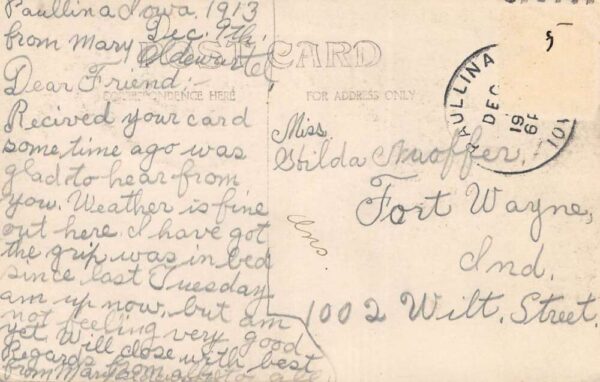 Paullina Iowa. 1913
Dec. 9th.
from Mary
POST CARD
Dear Friend:-
CORRESPONDENCE HERE
Recived your card
some time ago was
glad to hear from
you. Weather is fine
out here I have got
the grip was in bed
since last Tuesday
am up now, but am
not feeling very good
yet. Will close with best
Regards from all to all
from Mary
FOR ADDRESS ONLY
Miss.
Hilda
Fort Wayne,
Ind.
1002 Wilt. Street.
Ans.
PAULLINA
DEC
19
IO
5